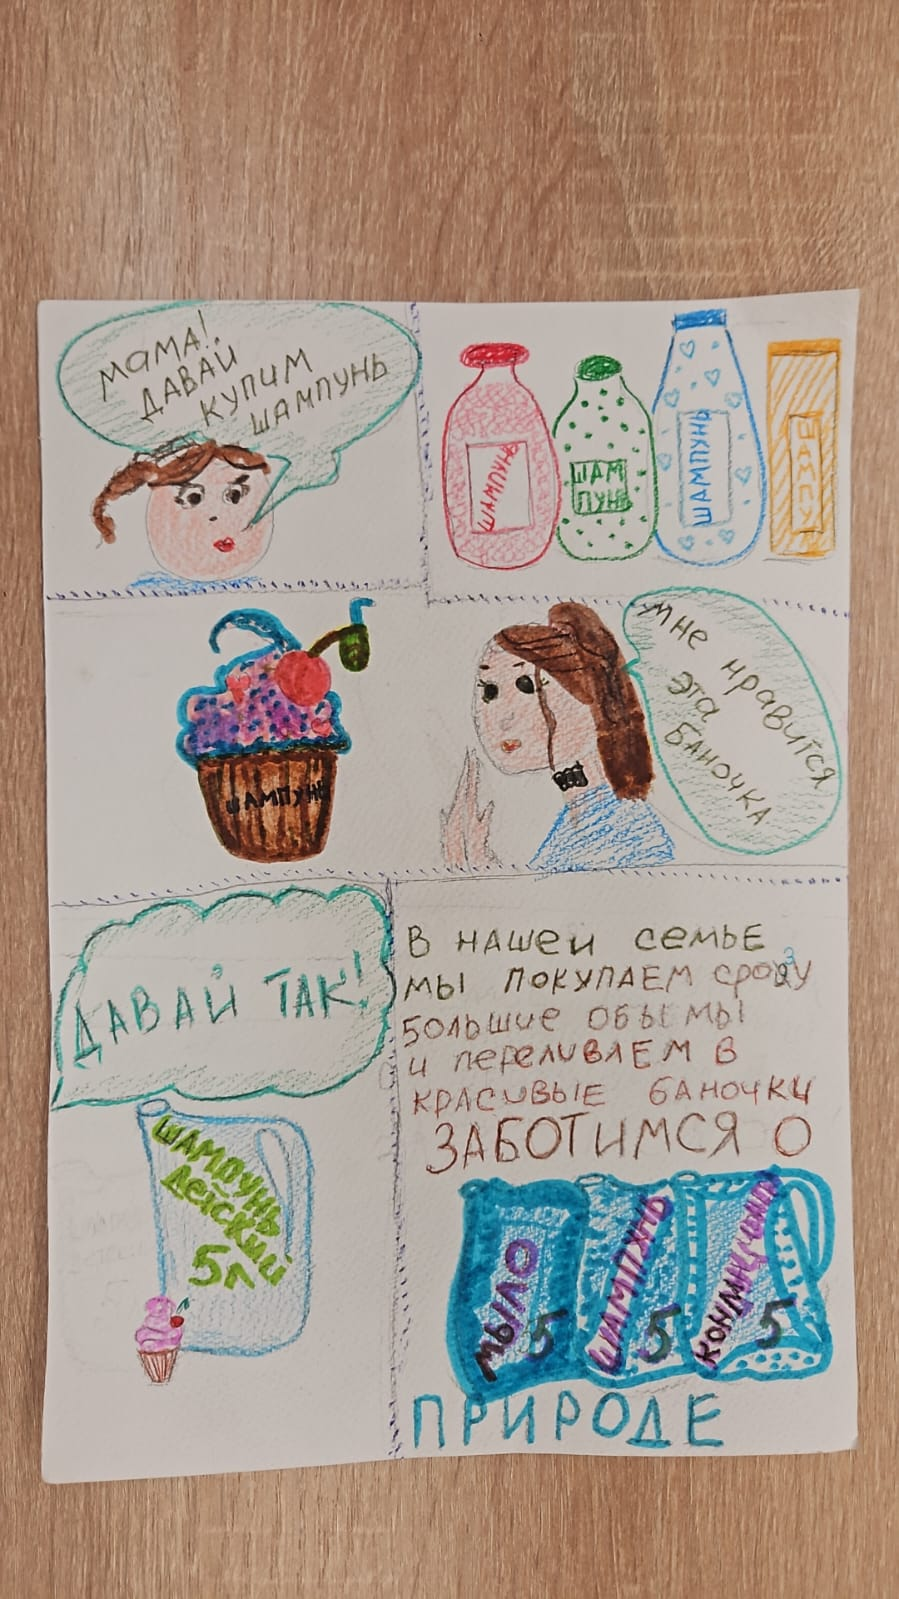 МАМА!
ДАВАЙ
КУПИМ
ШАМПУНЬ
ШАМПУНЬ
ШАМ
ПУНЬ
ШАМПУНЬ
ШАМПУНЬ
Мне нравится
эта
баночка
ДАВАЙ ТАК!
ШАМПУНЬ
ДЕТСКИЙ
5л
В НАШЕЙ СЕМЬЕ
МЫ ПОКУПАЕМ СРАЗУ
БОЛЬШИЕ ОБЪЕМЫ
И ПЕРЕЛИВАЕМ В
КРАСИВЫЕ БАНОЧКИ
ЗАБОТИМСЯ О
МЫЛО 5
ШАМПУНЬ 5
5
ПРИРОДЕ